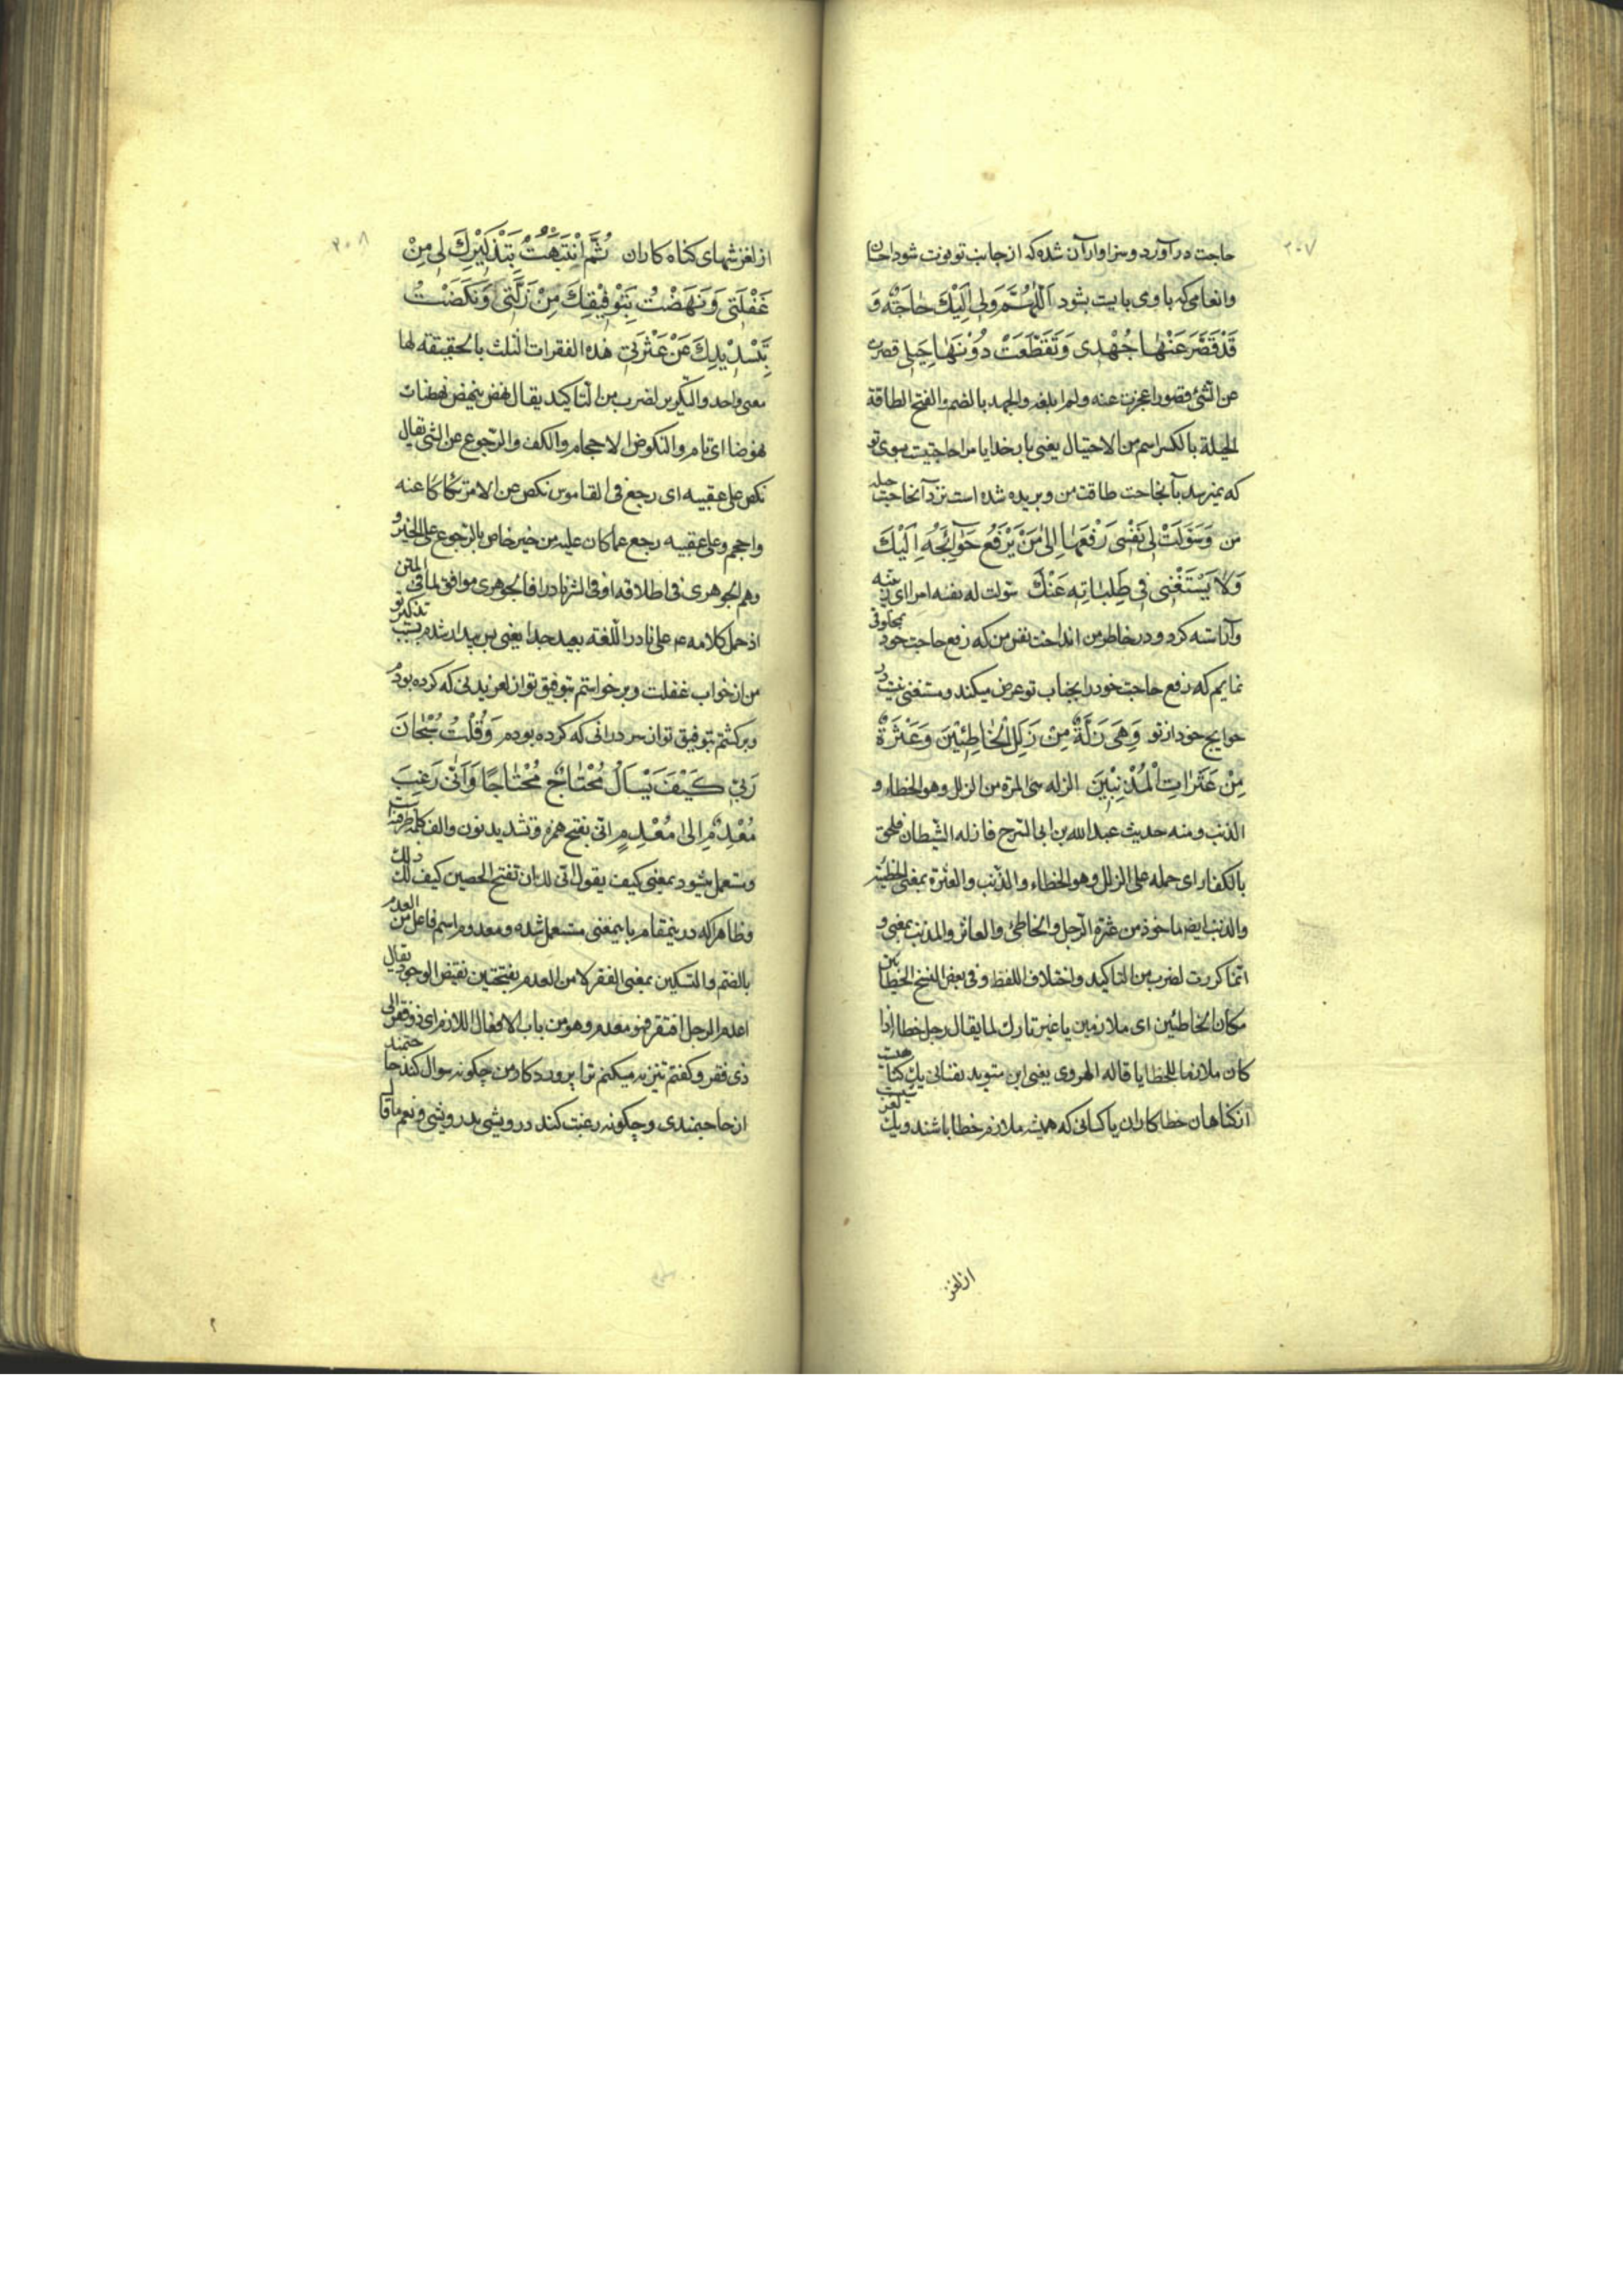 ۲۰۷
حاجت در آورد و سزاوار آن شده که از جانب تو فوت شود احسان
و انعامی که باوی بایست بشود اَللّٰهُمَّ وَلِي اِلَيْكَ حٰاجَةٌ وَ
قَدْ قَصَّرَ عَنْهٰا جُهْدِي وَتَقَطَّعَتْ دُوْنَهٰا حِيَلِي قصرت
عن الشئ قصورا عجزت عنه ولم ابلغه والجهد بالضم والفتح الطاقة
الحيلة بالكسر اسم من الاحتيال يعنی بار خدايا مرا حاجتيست بسوی تو
که نميرسد بآنحاجت طاقت من و بريده شده است نزد آنحاجت حيله
من وَسَوَّلَتْ لِي نَفْسِي رَفْعَهٰا اِلىٰ مَنْ يَرْفَعُ حَوٰآئِجَهُ اِلَيْكَ
وَلاٰ يَسْتَغْنِي فِي طَلِبٰاتِهِ عَنْكَ سوّلت له نفسه امرا ای زينته
و آراسته کرد و در خاطر من انداخت نفس من که رفع حاجت خود بمخلوقی
نمايم که رفع حاجت خود را بجناب تو عرض ميکند و مستغنی نيست در
حوايج خود از تو وَهِيَ زَلَّةٌ مِنْ زَلَلِ الْخٰاطِئِيْنَ وَعَثْرَةٌ
مِنْ عَثَرٰاتِ الْمُذْنِبِيْنَ الزله هی المرة من الزلل وهو الخطاء و
الذنب ومنه حديث عبد الله بن ابی السرح فازله الشيطان فلحق
بالكفار ای حمله علی الزلل وهو الخطاء والذنب والعثرة بمعنی الخطيئة
والذنب ايضا ماخوذ من عثرة الرجل والخاطئ والعاثر والمذنب بمعنی و
انما كررت لضرب من التاكيد واختلاف اللفظ وفی بعض النسخ الخطائين
مكان الخاطئين ای ملازمين يا غير تارك لما يقال رجل خطاء اذا
كان ملازما للخطايا قاله الهروی يعنی اين نفسانی يك گناهيست
از گناهان خطاکاران يا کسانی که هميشه ملازم خطا باشند و يك لغزشيست
از لغز
۲۰۸
از لغزشهای گناه کاران ثُمَّ انْتَبَهْتُ بِتَذْكِيْرِكَ لِي مِنْ
غَفْلَتِي وَنَهَضْتُ بِتَوْفِيْقِكَ مِنْ زَلَّتِي وَنَكَصْتُ
بِتَسْدِيْدِكَ عَنْ عَثْرَتِي هذه الفقرات الثلث بالحقيقة لها
معنی واحد والتكرير لضرب من التاكيد يقال نهض ينهض نهضا و
نهوضا ای قام والنكوص الاحجام والكف والرجوع عن الشئ يقال
نكص علی عقبيه ای رجع فی القاموس نكص عن الامر تكاكا عنه
واحجم وعلی عقبيه رجع عما كان عليه من خير خاص بالرجوع عن الخير و
وهم الجوهری فی اطلاقه او فی الشر نادرا فالجوهری موافق لما فی المتن
اذ حمل كلامه ع علی نادر اللغة بعيد جدا يعنی پس بيدار شدم بسبب تذكير تو
من از خواب غفلت و برخواستم بتوفيق تو از لغزيدنی که کرده بودم
و برگشتم بتوفيق تو از سر درانی که کرده بودم وَقُلْتُ سُبْحٰانَ
رَبِّي كَيْفَ يَسْأَلُ مُحْتٰاجٌ مُحْتٰاجًا وَاَنّٰى رَغِبَ
مُعْدِمٌ اِلىٰ مُعْدِمٍ انّی بفتح همزه و تشديد نون و الف كلمه ظرفست
و مستعمل ميشود بمعنی كيف يقول انی لك ان تفتح الحصين كيف لك ذلك
و ظاهرا که در ينمقام باينمعنی مستعمل شده و معدوم اسم فاعل من العدم
بالضم والتسكين بمعنی الفقر لا من العدم بفتحتين نقيض الوجود يقال
اعدم الرجل افتقر فهو معدم وهو من باب الافعال اللازم ای ذو فقر الی
ذی فقر و گفتم تنزيه ميکنم ترا پروردگار من چگونه سوال کند حاجتمند
از حاجتمندی و چگونه رغبت کند درويشی بدرويشی و نعم ما قال